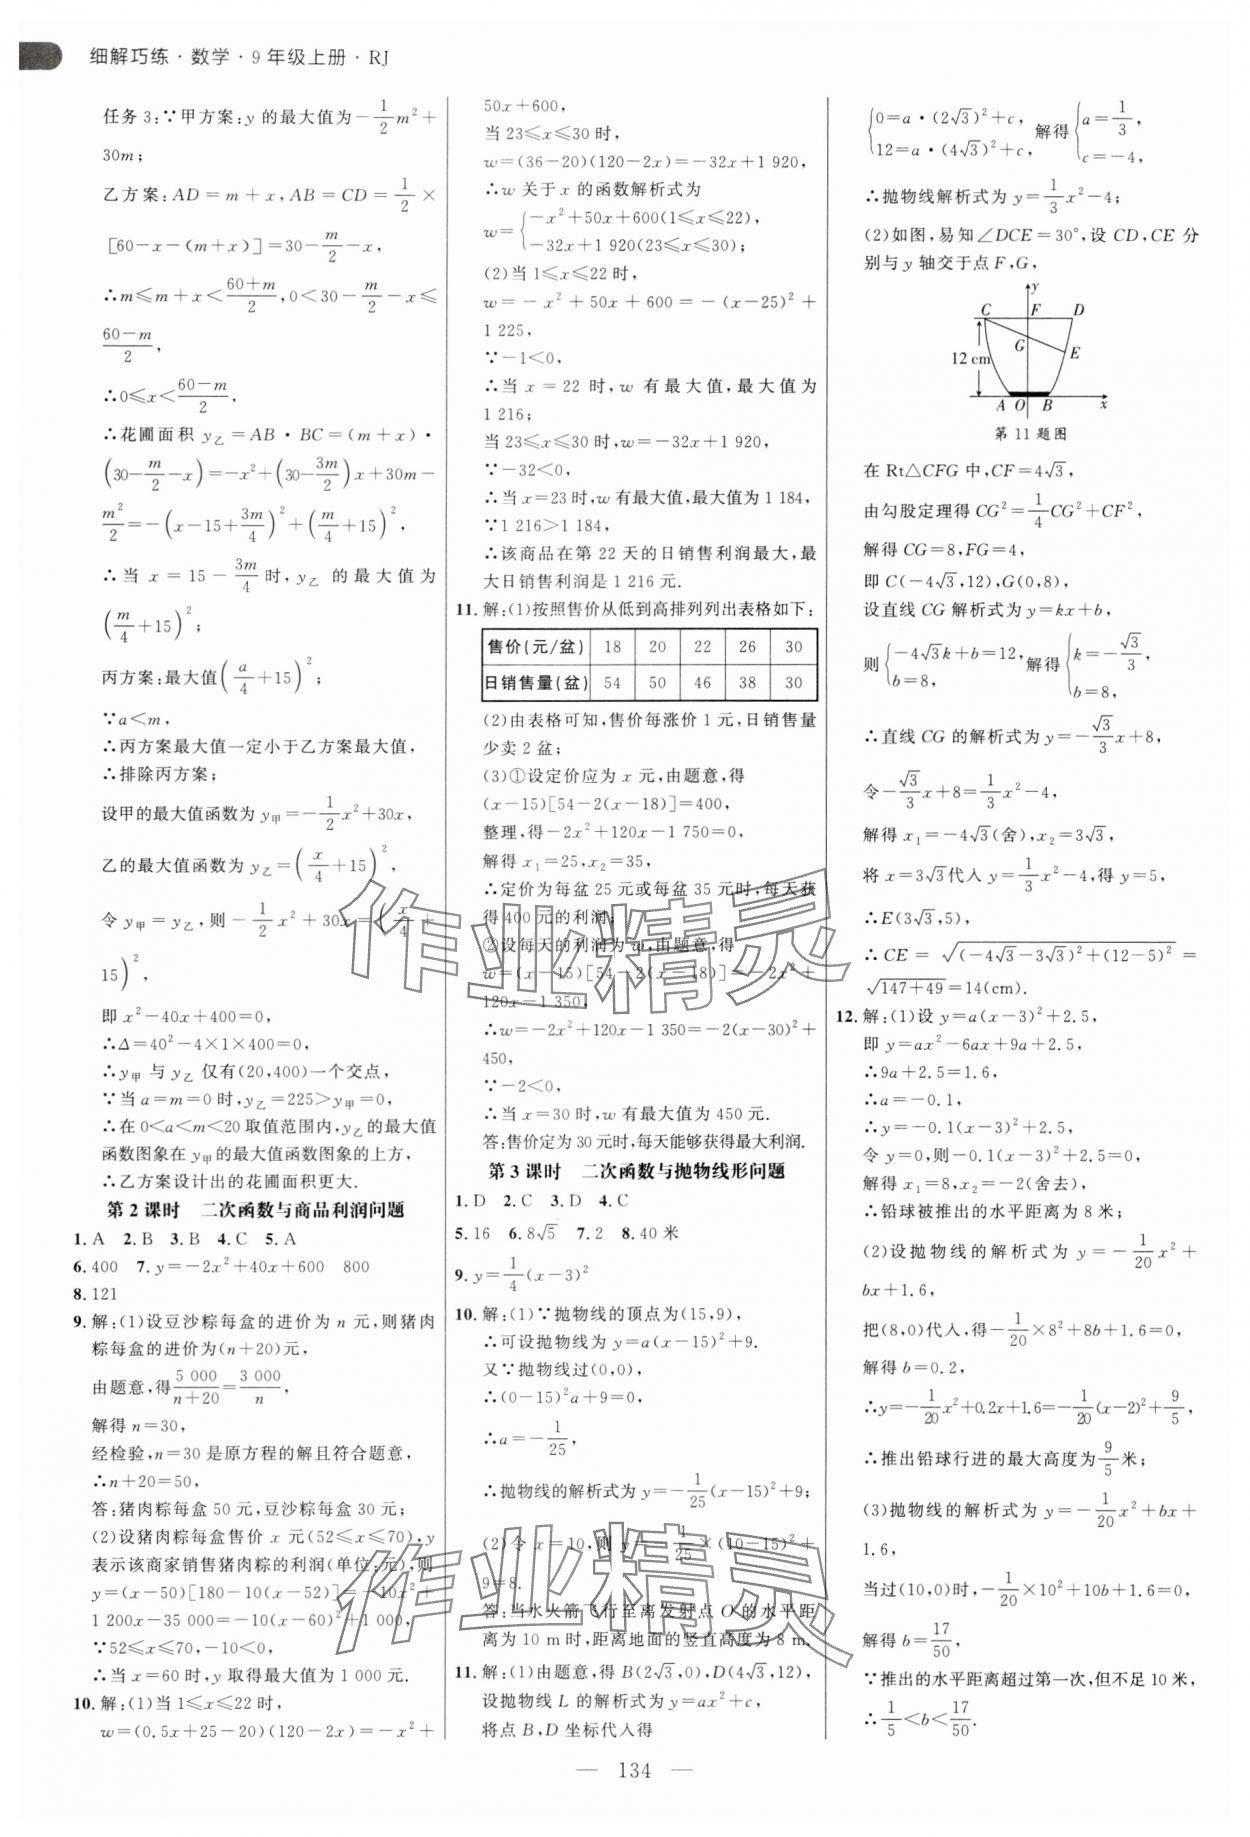 细解巧练·数学·9年级上册·RJ
任务3:∵甲方案:y 的最大值为$-\frac{1}{2}m^2+$
30m;
乙方案:AD=m+x,AB=CD=$\frac{1}{2}$×
[60-x-(m+x)]=30-$\frac{m}{2}$-x,
∴m≤m+x<$\frac{60+m}{2}$,0<30-$\frac{m}{2}$-x≤
$\frac{60-m}{2}$,
∴0≤x<$\frac{60-m}{2}$,
∴花圃面积 $y_乙$=AB·BC=(m+x)·
$\left(30-\frac{m}{2}-x\right)=-x^2+\left(30-\frac{3m}{2}\right)x+30m-$
$\frac{m^2}{2}=-\left(x-15+\frac{3m}{4}\right)^2+\left(\frac{m}{4}+15\right)^2$,
∴当 x=15-$\frac{3m}{4}$时,$y_乙$ 的最大值为
$\left(\frac{m}{4}+15\right)^2$;
丙方案:最大值$\left(\frac{a}{4}+15\right)^2$;
∵a<m,
∴丙方案最大值一定小于乙方案最大值,
∴排除丙方案;
设甲的最大值函数为 $y_甲=-\frac{1}{2}x^2+30x$,
乙的最大值函数为 $y_乙=\left(\frac{x}{4}+15\right)^2$,
令 $y_甲=y_乙$,则$-\frac{1}{2}x^2+30x=\left(\frac{x}{4}+\right.$
$\left.15\right)^2$,
即 $x^2-40x+400=0$,
∴Δ=$40^2$-4×1×400=0,
∴$y_甲$ 与 $y_乙$ 仅有(20,400)一个交点,
∵当 a=m=0 时,$y_乙$=225>$y_甲$=0,
∴在 0<a<m<20 取值范围内,$y_乙$的最大值
函数图象在 $y_甲$ 的最大值函数图象的上方,
∴乙方案设计出的花圃面积更大.
第2课时 二次函数与商品利润问题
1. A 2. B 3. B 4. C 5. A
6. 400 7. $y=-2x^2+40x+600$ 800
8. 121
9. 解:(1)设豆沙粽每盒的进价为 n 元,则猪肉
粽每盒的进价为(n+20)元,
由题意,得$\frac{5\,000}{n+20}=\frac{3\,000}{n}$,
解得 n=30,
经检验,n=30 是原方程的解且符合题意,
∴n+20=50,
答:猪肉粽每盒 50 元,豆沙粽每盒 30 元;
(2)设猪肉粽每盒售价 x 元(52≤x≤70),y
表示该商家销售猪肉粽的利润(单位:元),则
y=(x-50)[180-10(x-52)]=$-10x^2+$
1 200x-35 000=-10(x-60)$^2$+1 000,
∵52≤x≤70,-10<0,
∴当 x=60 时,y 取得最大值为 1 000 元.
10. 解:(1)当 1≤x≤22 时,
w=(0.5x+25-20)(120-2x)=$-x^2+$
50x+600,
当 23≤x≤30 时,
w=(36-20)(120-2x)=-32x+1 920,
∴w 关于 x 的函数解析式为
$w=\begin{cases}-x^2+50x+600(1≤x≤22),\\-32x+1\,920(23≤x≤30),\end{cases}$
(2)当 1≤x≤22 时,
w=$-x^2$+50x+600=-(x-25)$^2$+
1 225,
∵-1<0,
∴当 x=22 时,w 有最大值,最大值为
1 216;
当 23≤x≤30 时,w=-32x+1 920,
∵-32<0,
∴当 x=23 时,w 有最大值,最大值为 1 184,
∵1 216>1 184,
∴该商品在第 22 天的日销售利润最大,最
大日销售利润是 1 216 元.
11. 解:(1)按照售价从低到高排列列出表格如下:
售价(元/盆) 18 20 22 26 30
日销售量(盆) 54 50 46 38 30
(2)由表格可知,售价每涨价 1 元,日销售量
少卖 2 盆;
(3)①设定价应为 x 元,由题意,得
(x-15)[54-2(x-18)]=400,
整理,得$-2x^2$+120x-1 750=0,
解得 $x_1=25,x_2=35$,
∴定价为每盆 25 元或每盆 35 元时,每天获
得 400 元的利润;
②设每天的利润为 w,由题意,得
w=(x-15)[54-2(x-18)]=$-2x^2+$
120x-1 350,
∴w=$-2x^2$+120x-1 350=-2(x-30)$^2$+
450,
∵-2<0,
∴当 x=30 时,w 有最大值为 450 元.
答:售价定为 30 元时,每天能够获得最大利润.
第3课时 二次函数与抛物线形问题
1. D 2. C 3. D 4. C
5. 16 6. $8\sqrt{5}$ 7. 2 8. 40 米
9. $y=\frac{1}{4}(x-3)^2$
10. 解:(1)∵抛物线的顶点为(15,9),
∴可设抛物线为 $y=a(x-15)^2+9$.
又∵抛物线过(0,0),
∴$(0-15)^2a+9=0$,
∴$a=-\frac{1}{25}$,
∴抛物线的解析式为 $y=-\frac{1}{25}(x-15)^2+9$;
(2)令 x=10,则 $y=-\frac{1}{25}(10-15)^2+$
9=8.
答:当水火箭飞行至离发射点 O 的水平距
离为 10 m 时,距离地面的竖直高度为 8 m.
11. 解:(1)由题意,得 B($2\sqrt{3}$,0),D($4\sqrt{3}$,12),
设抛物线 L 的解析式为 $y=ax^2+c$,
将点 B,D 坐标代入得
$\begin{cases}0=a·(2\sqrt{3})^2+c,\\12=a·(4\sqrt{3})^2+c,\end{cases}$解得$\begin{cases}a=\frac{1}{3},\\c=-4,\end{cases}$
∴抛物线解析式为 $y=\frac{1}{3}x^2-4$;
(2)如图,易知∠DCE=30°,设 CD,CE 分
别与 y 轴交于点 F,G,
y
C F D
G
E
12 cm
A O B x
第 11 题图
在 Rt△CFG 中,CF=$4\sqrt{3}$,
由勾股定理得 $CG^2=\frac{1}{4}CG^2+CF^2$,
解得 CG=8,FG=4,
即 C($-4\sqrt{3}$,12),G(0,8),
设直线 CG 解析式为 y=kx+b,
则$\begin{cases}-4\sqrt{3}k+b=12,\\b=8,\end{cases}$解得$\begin{cases}k=-\frac{\sqrt{3}}{3},\\b=8,\end{cases}$
∴直线 CG 的解析式为 $y=-\frac{\sqrt{3}}{3}x+8$,
令$-\frac{\sqrt{3}}{3}x+8=\frac{1}{3}x^2-4$,
解得 $x_1=-4\sqrt{3}$(舍),$x_2=3\sqrt{3}$,
将 $x=3\sqrt{3}$代入 $y=\frac{1}{3}x^2-4$,得 y=5,
∴E($3\sqrt{3}$,5),
∴CE=$\sqrt{(-4\sqrt{3}-3\sqrt{3})^2+(12-5)^2}$=
$\sqrt{147+49}$=14(cm).
12. 解:(1)设 $y=a(x-3)^2+2.5$,
即 $y=ax^2-6ax+9a+2.5$,
∴9a+2.5=1.6,
∴a=-0.1,
∴$y=-0.1(x-3)^2+2.5$,
令 y=0,则$-0.1(x-3)^2+2.5=0$,
解得 $x_1=8,x_2=-2$(舍去),
∴铅球被推出的水平距离为 8 米;
(2)设抛物线的解析式为 $y=-\frac{1}{20}x^2+$
bx+1.6,
把(8,0)代入,得$-\frac{1}{20}×8^2+8b+1.6=0$,
解得 b=0.2,
∴$y=-\frac{1}{20}x^2+0.2x+1.6=-\frac{1}{20}(x-2)^2+\frac{9}{5}$,
∴推出铅球行进的最大高度为$\frac{9}{5}$米;
(3)抛物线的解析式为 $y=-\frac{1}{20}x^2+bx+$
1.6,
当过(10,0)时,$-\frac{1}{20}×10^2+10b+1.6=0$,
解得 $b=\frac{17}{50}$,
∵推出的水平距离超过第一次,但不足 10 米,
∴$\frac{1}{5}<b<\frac{17}{50}$.
作业精灵
作业精灵
— 134 —